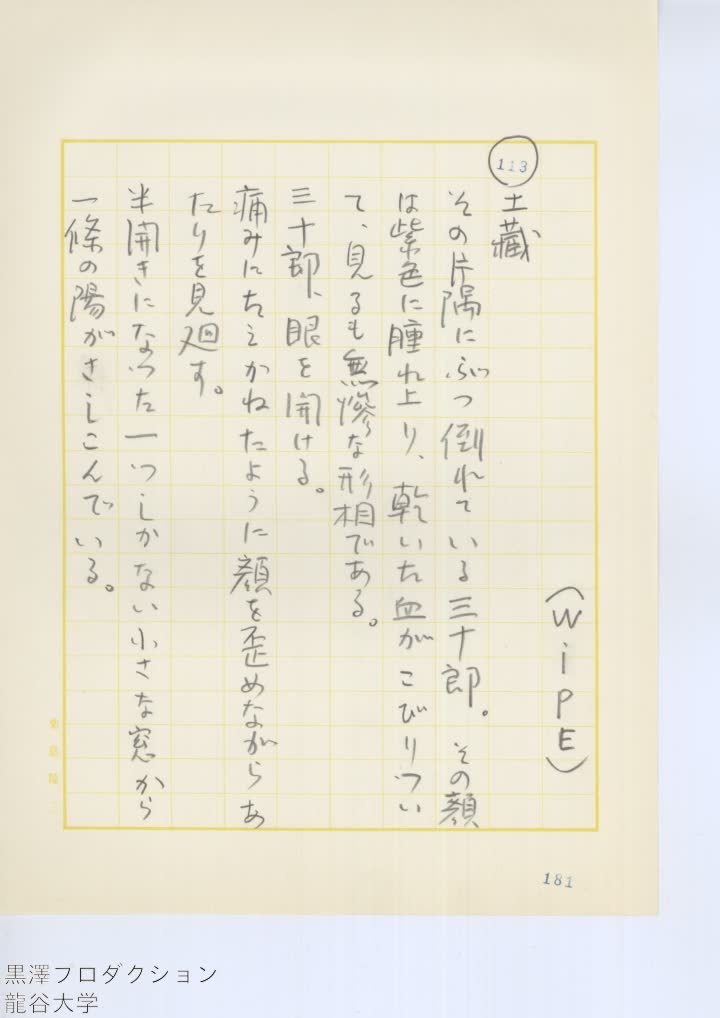 (WiPE)
113
土藏
その片隅にぶつ倒れている三十郎。その顔
は紫色に腫れ上り、乾いた血がこびりつい
て、見るも無慘な形相である。
三十郎、眼を開ける。
痛みにたえかねたように顔を歪めながらあ
たりを見廻す。
半開きになつた一つしかない小さな窓から
一條の陽がさしこんでいる。
181
黒澤プロダクション
龍谷大学